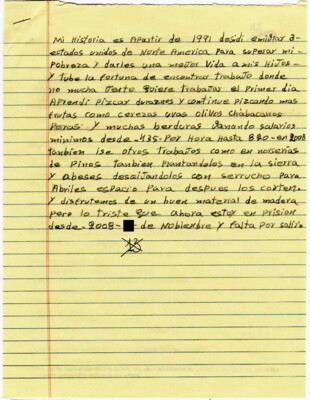 Mi Historia es Apartir de 1991 desidi emigrar a-
estados unidos de Norte America Para superar mi-
Pobreza y darles una mejor Vida a mis Hijos-
y tube la fortuna de encontrar trabajo donde
no mucha Jente quiere trabajar el Primer dia
Aprendi Pizcar duraznos y continue Pizcando mas
frutas como cerezas uvas olivos chiabacanos
Peras y muchas berduras Ganando salarios
minimos desde-435-Por Hora Hasta 820-en 2008
tanbien ise otros trabajos como en norserias
de Pinos tanbien Plantandolos en la sierra
y abeses desaijandolos con serrucho Para
Abriles espacio Para despues los corten.
y disfrutemos de un buen material de madera
pero lo triste que ahora estoy en Prision
desde-2008- de Nobiembre y falta por salir.
13